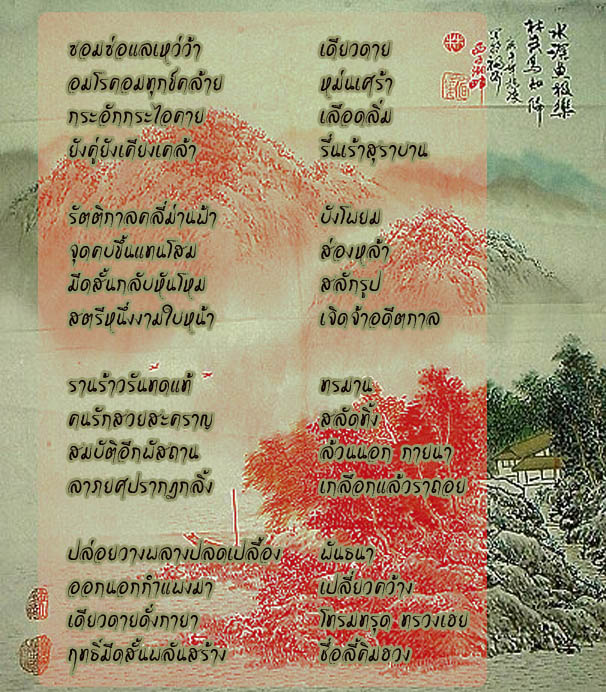 ซอมซ่อแลเหว่ว้า เดียวดาย
อมโรคอมทุกข์คล้าย หม่นเศร้า
กระอักกระไอคาย เลือดลิ่ม
ยังคู่ยังเคียงเคล้า รื่นเร้าสุราบาน
รัตติกาลคลี่ม่านฟ้า บังโพยม
จุดคบขึ้นแทนโสม ส่องหล้า
มีดสั้นกลับหันโหม สลักรูป
สตรีหนึ่งงามใบหน้า เจิดจ้าอดีตกาล
รานร้าวรันทดแท้ ทรมาน
คนรักสวยสะคราญ สลัดทิ้ง
สมบัติอีกพัสถาน ล้วนนอก กายนา
ลาภยศปรากฏกลิ้ง เกลือกแล้วราถอย
ปล่อยวางพลางปลดเปลื้อง พันธนา
ออกนอกกำแพงมา เปลี่ยวคว้าง
เดียวดายดั่งกายา โทรมทรุด ทรวงเฮย
ฤทธิ์มีดสั้นพลันสร้าง ชื่อลี้คิมฮวง